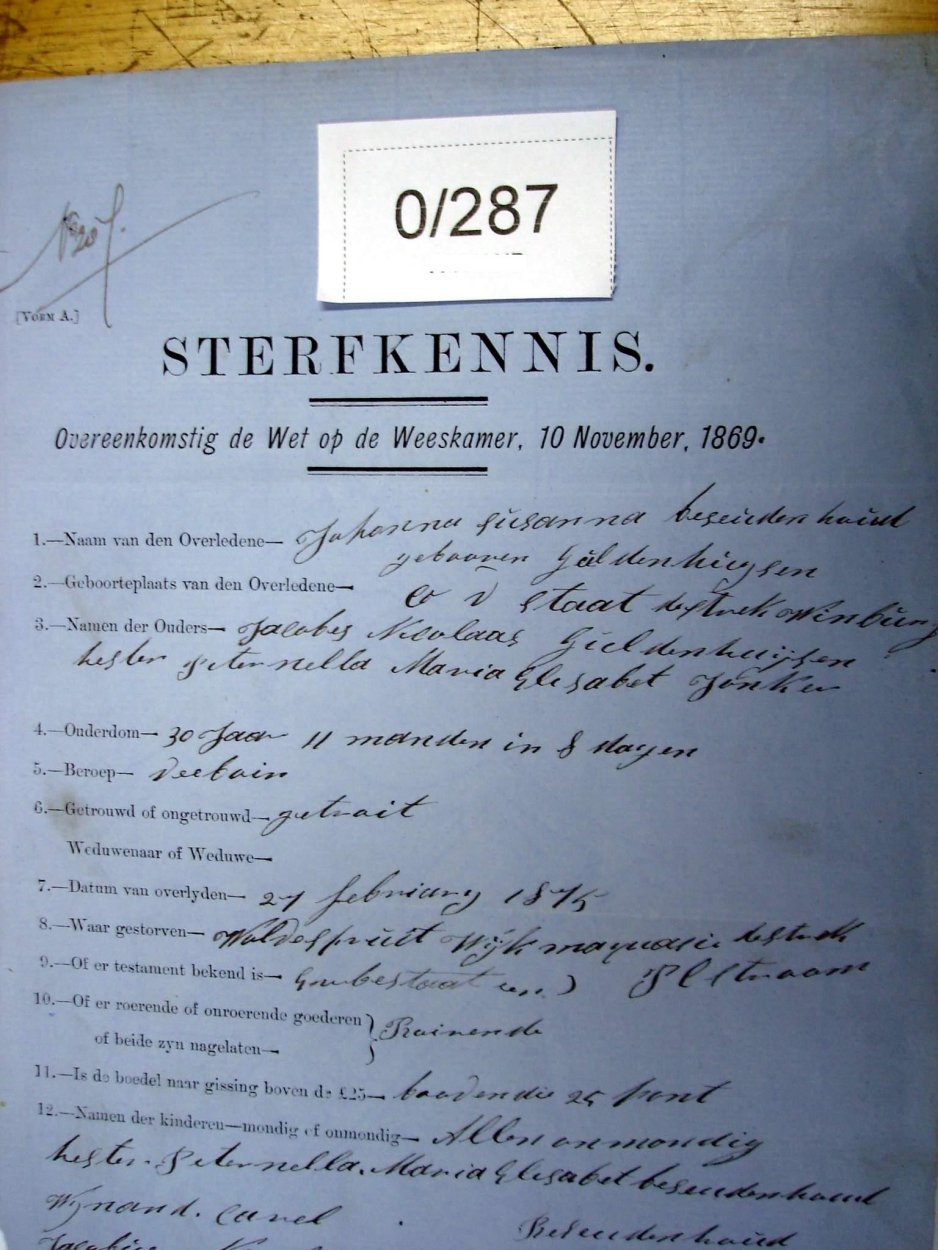 0/287
[VORM A.]
STERFKENNIS.
Overeenkomstig de Wet op de Weeskamer, 10 November, 1869.
1.—Naam van den Overledene— Johanna Susanna beseudenhoud
gebooren Guldenhuysen
2.—Geboorteplaats van den Overledene— O V Staat destrek Winburg
3.—Namen der Ouders— Jacobes Nicolaas Guldenhuysen
hester Peternella Maria Elesabet Jonker
4.—Ouderdom— 30 Jaar 11 manden in 8 dagen
5.—Beroep—
6.—Getrouwd of ongetrouwd— getrait
Weduwenaar of Weduwe—
7.—Datum van overlyden— 27 februarij 1875
8.—Waar gestorven— Wolvespruit Wijk maquasie destrek
9.—Of er testament bekend is— bestaat een
10.—Of er roerende of onroerende goederen
of beide zyn nagelaten— Roirende
11.—Is de boedel naar gissing boven de £25— boovendie 25 pont
12.—Namen der kinderen—mondig of onmondig— Allen onmondig
hester Peternella Maria Elesabet beseudenhoud
Wynand Carel Beseudenhoud